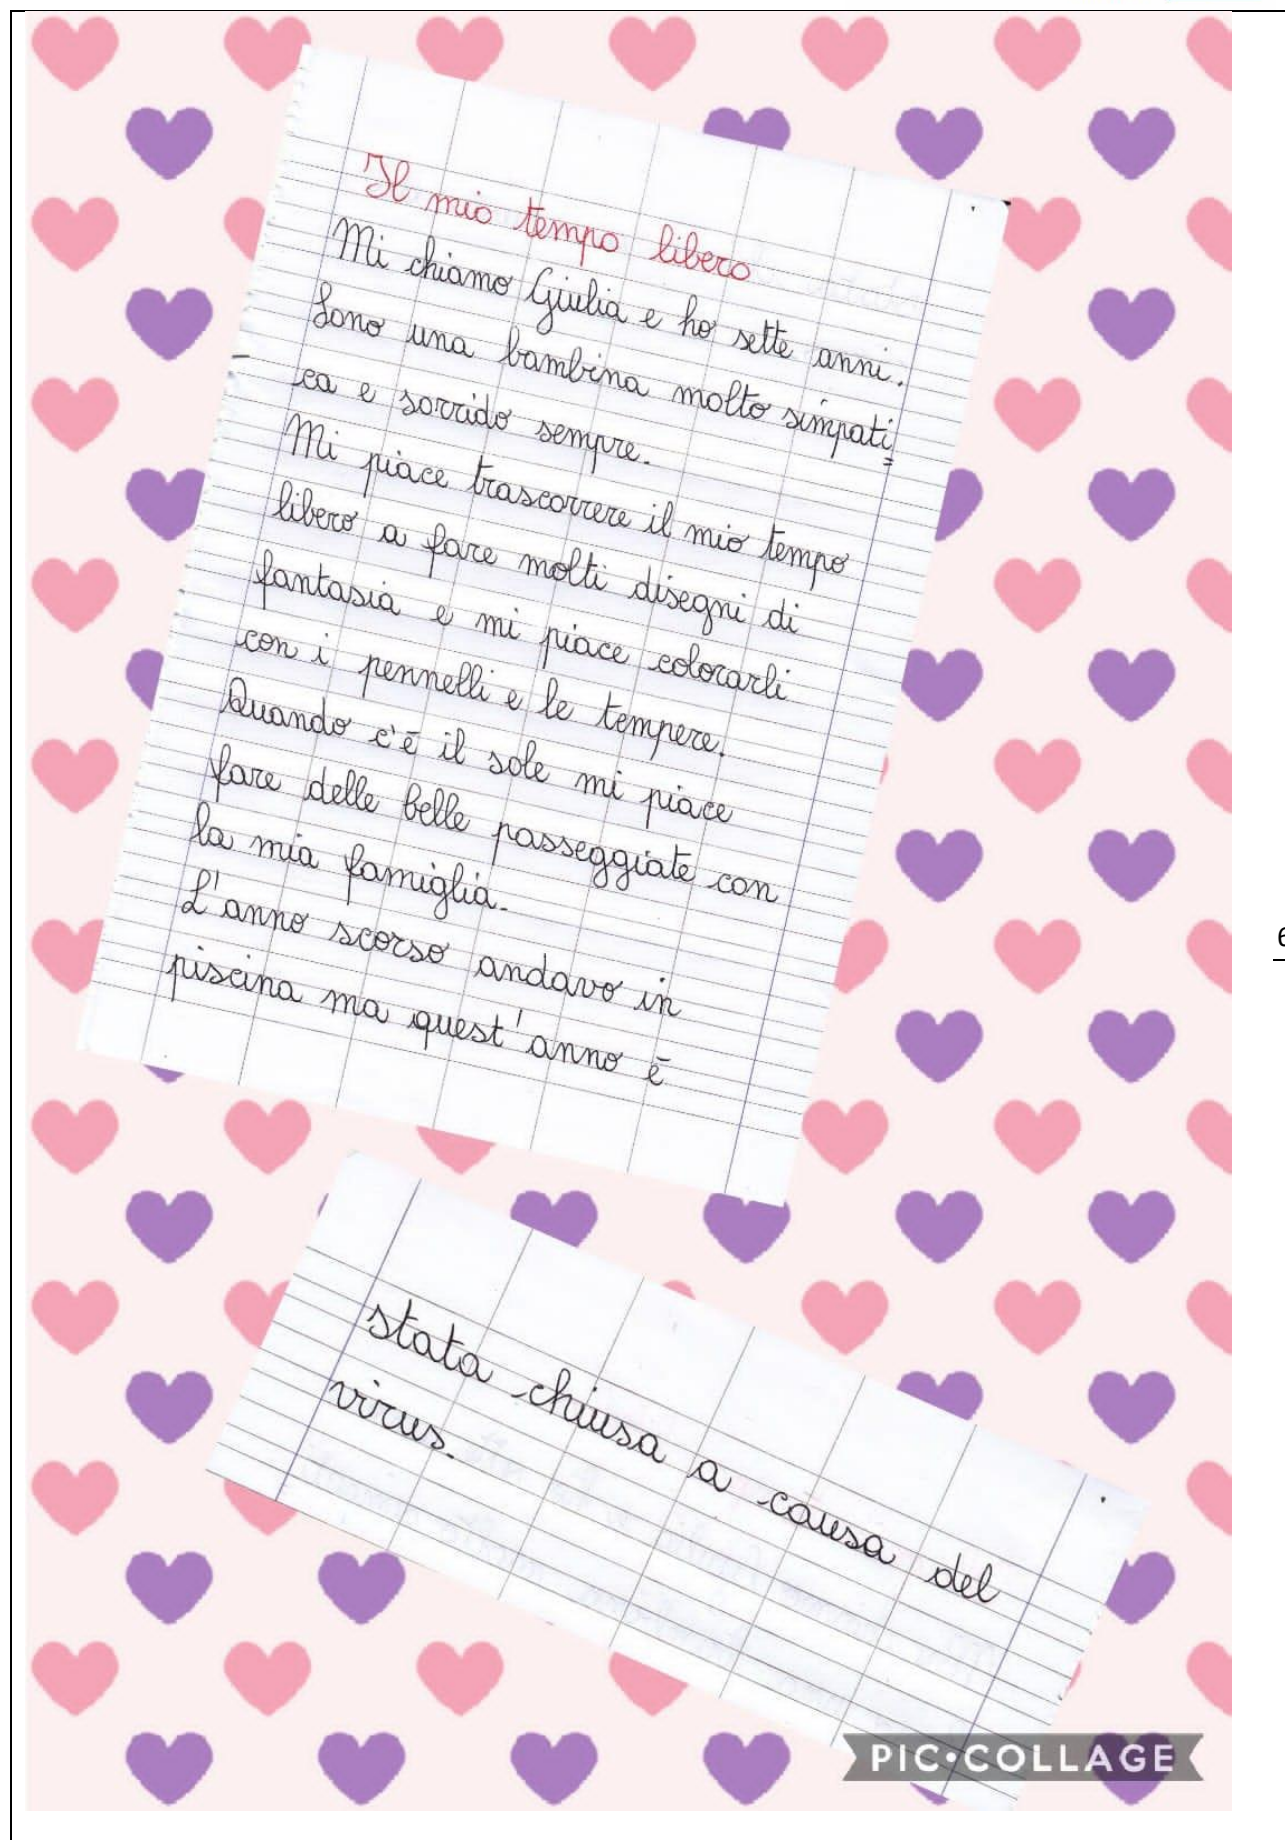 Il mio tempo libero
Mi chiamo Giulia e ho sette anni.
Sono una bambina molto simpati=
ca e sorrido sempre.
Mi piace trascorrere il mio tempo
libero a fare molti disegni di
fantasia e mi piace colorarli
con i pennelli e le tempere.
Quando c'è il sole mi piace
fare delle belle passeggiate con
la mia famiglia.
L'anno scorso andavo in
piscina ma quest'anno è
stata chiusa a causa del
virus.
PIC•COLLAGE
6